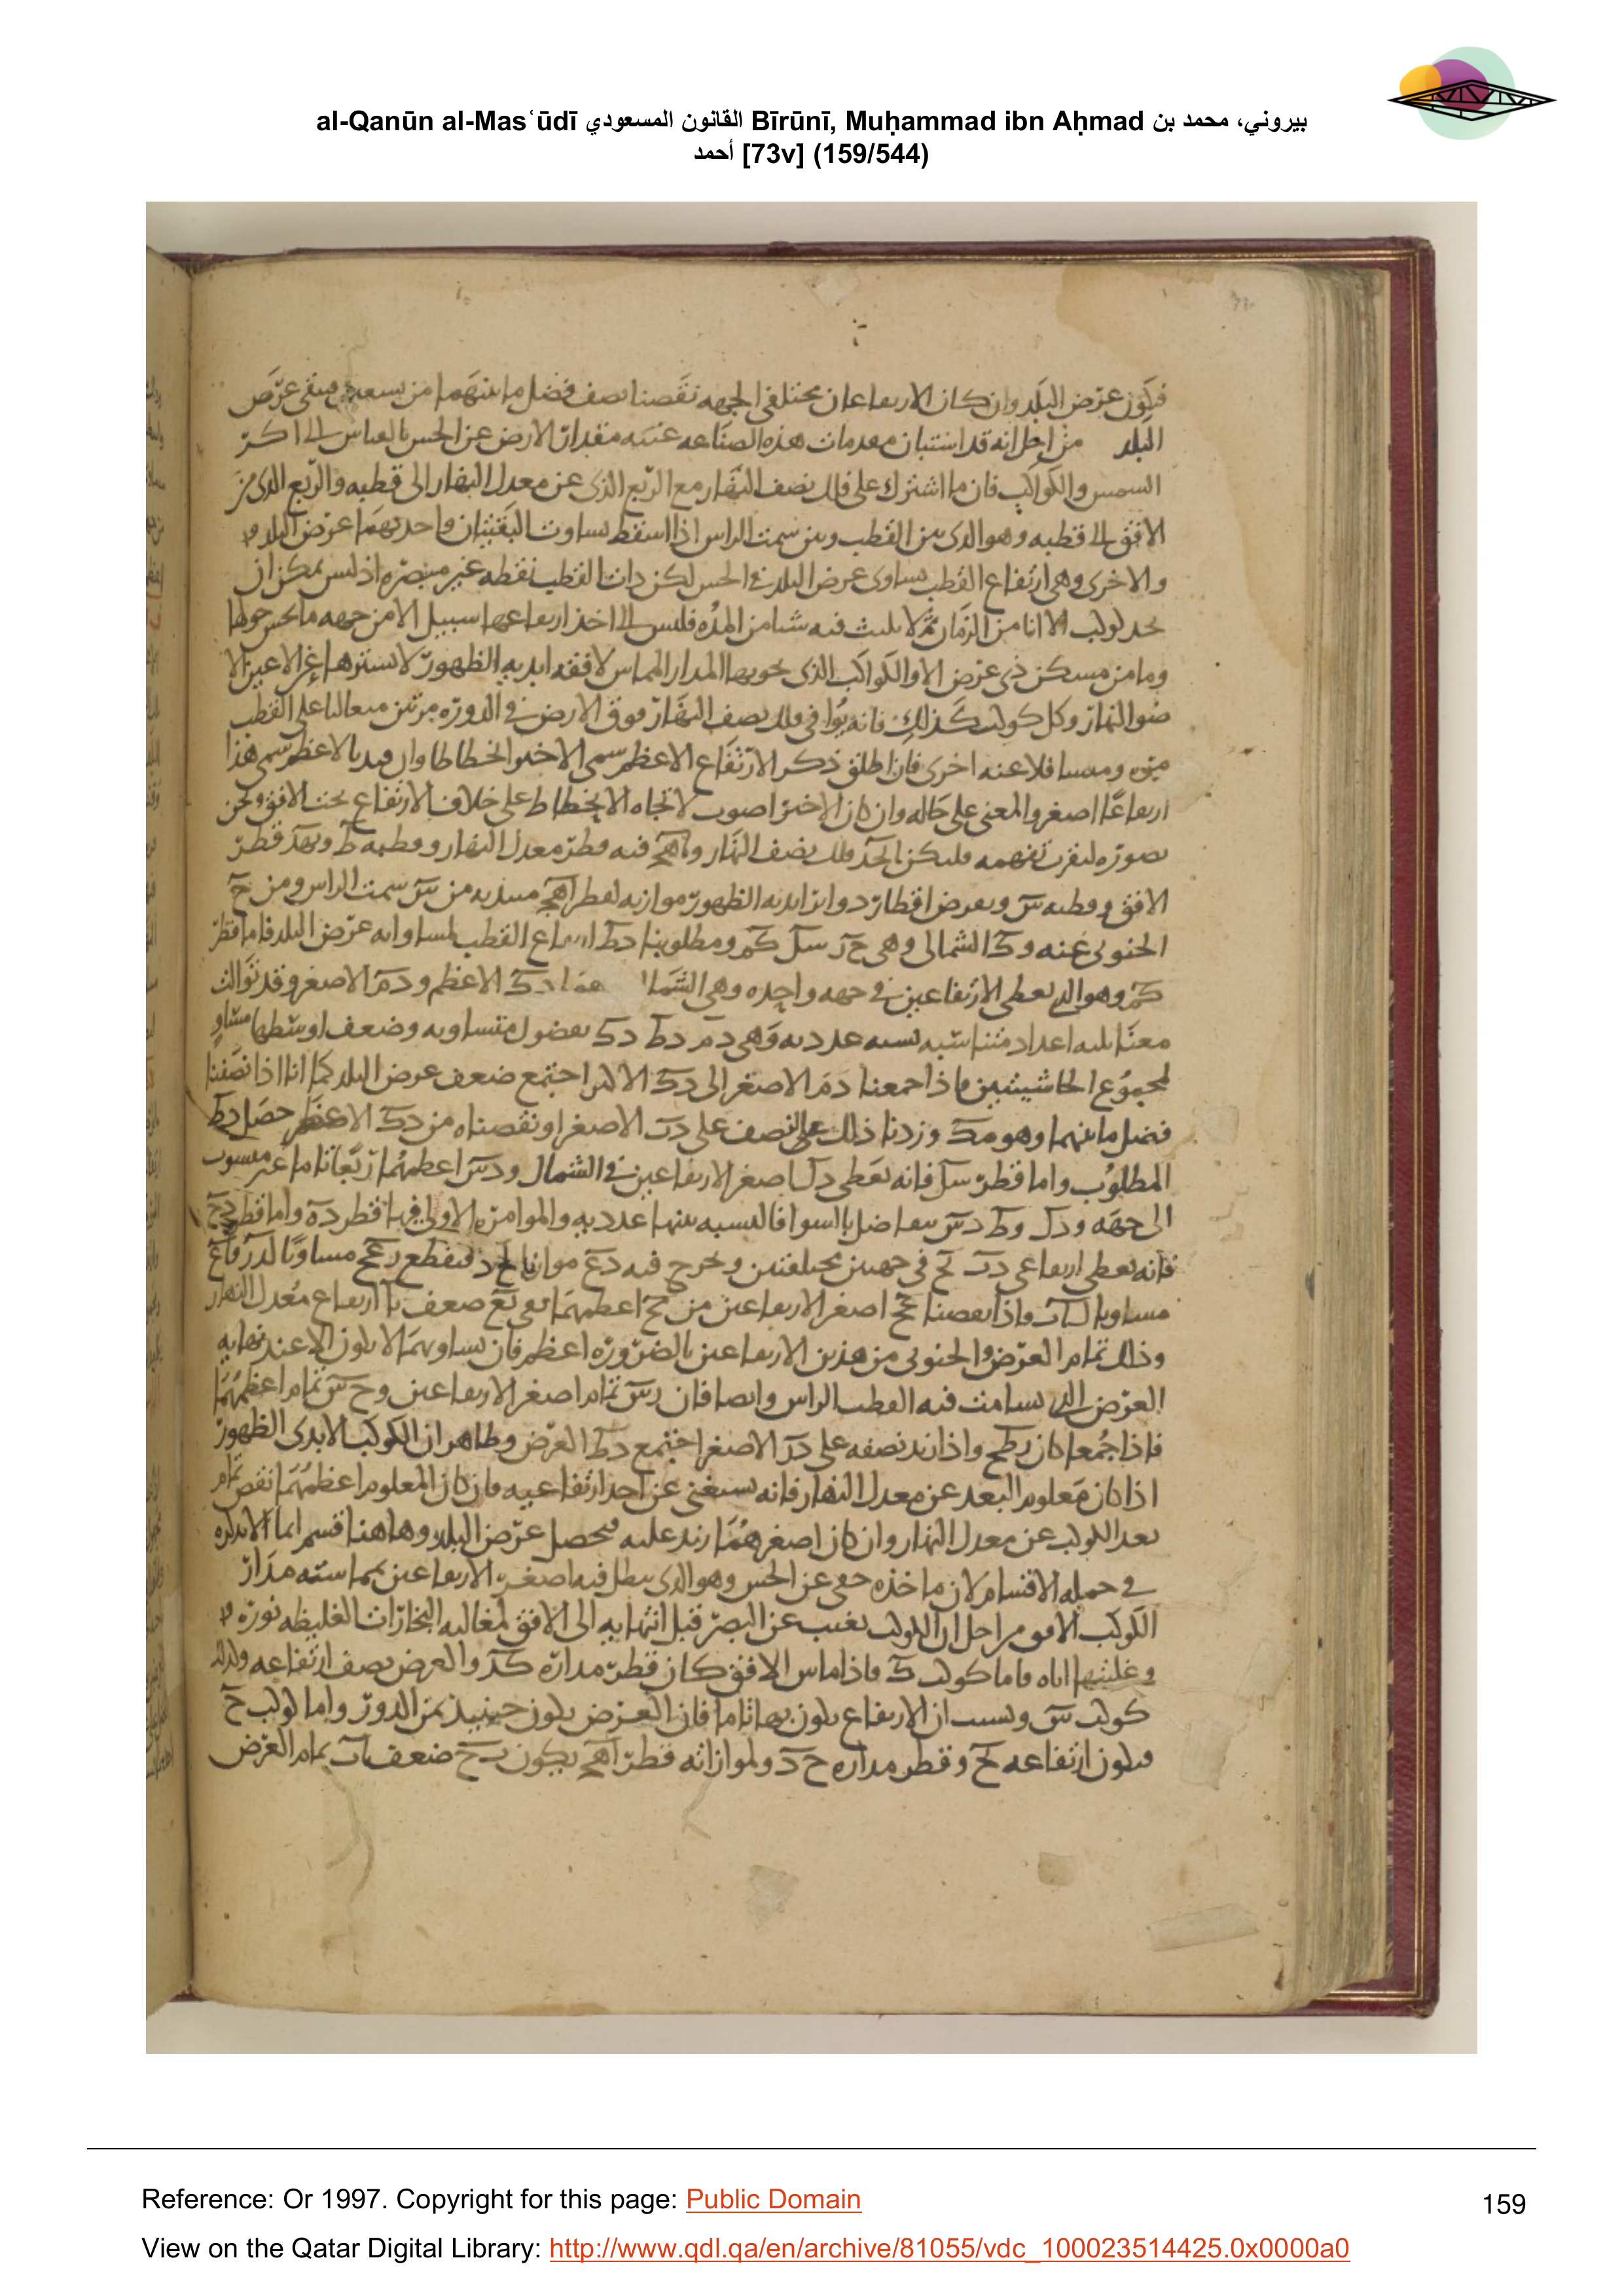 al-Qanūn al-Mas‘ūdī القانون المسعودي Bīrūnī, Muḥammad ibn Aḥmad بيروني، محمد بن
أحمد [73v] (159/544)
فيكون عرض البلد وان كان الارتفاعان مختلفى الجهه نقصنا نصف فضل ما بينهما من سعىں فيبقى عرض
البلد من اجل انه قد استبان مقدمات هذه الصناعه غيبه مقدار الارض عن الحس بالقياس الى اكر
الشمس والكواكب فان ما اشترك على فلك نصف النهار مع الربع الذى عن معدل النهار الى قطبه والربع الذى من
الافق الى قطبه وهو الذى بين القطب وبين سمت الراس اذا اسقط تساوت البقيتان واحديهما عرض البلد
والاخرى وهى ارتفاع القطب يساوى عرض البلد فى الحس لكن ذات القطب نقطه غير مبصره اذ ليس يمكن ان
كوكب الا انا من الزمان ثم لا يلبث فيه شيا من المده فليس الى اخذ ارتفاعها سبيل الا من جهه ما حولها
وما من مسكن ذى عرض الا والكواكب الذى يحويها المدار المماس لافقه ابديه الظهور لا يسترها عن الاعين الا
ضو النهار وكل كوكب كذلك فانه يوافى فلك نصف النهار فوق الارض فى الدوره مرتين متعاليا على القطب
مره ومتسافلا عنه اخرى فان اطلق ذكر الارتفاع الاعظم سمى الاخير انحطاطا وان قيد بالاعظم سمى هذا
ارتفاعا اصغر والمعنى على حاله وان كان الاخير اصوب لاتجاه الانحطاط على خلاف الارتفاع تحت الافق ونحن
نصوره ليقرب تفهمه فليكن ابجد فلك نصف النهار و اهج فيه قطر معدل النهار وقطبه ط وبهد قطر
الافق وقطبه س ونفرض اقطار دواير ابديه الظهور موازيه لقطر اهج مبتديه من س سمت الراس ومن ح
الجنوبى عنه و ك الشمالى وهى ح ر س ل ك م ومطلوبنا د ط ارتفاع القطب لمساواته عرض البلد فاما قطر
ك م وهو الذى يعطى الارتفاعين فى جهه واحده وهى الشمال د ك الاعظم و د م الاصغر وقد توالت
معنا ثلثه اعداد متناسبه نسبه عدديه وهى د م د ط د ك بفضول متساويه وضعف اوسطها مساو
لمجموع الحاشيتين فاذا جمعنا د م الاصغر الى د ك الاكبر اجتمع ضعف عرض البلد كما انا اذا نصفنا
فضل ما بينهما وهو م ك وزدنا ذلك النصف على الاصغر او نقصناه من د ك الاعظم حصل د ط
المطلوب واما قطر س ل فانه يعطى د ل اصغر الارتفاعين فى الشمال و د س اعظمهما ربعا تاما غير منسوب
الى جهه و د ل د ط د س تتفاضل بالسوا فالنسبه بينها عدديه والموامره الاولى فيها قطر ده واما قطر
فانه يعطى ارتفاعى فى جهتين مختلفتين ونخرج فيه د ع موازيا فيقطع مساويا
مساويا واذا نقصنا اصغر الارتفاعين من اعظمهما بقى ضعف ارتفاع معدل النهار
وذلك تمام العرض والجنوبى من هذين الارتفاعين بالضروره اعظم فان تساويهما لا يكون الا عند نهايه
العرض الذى يسامت فيه القطب الراس وايضا فان ر س تمام اصغر الارتفاعين و ح س تمام اعظمهما
فاذا جمعا كان واذا زيد نصفه على د ر الاصغر اجتمع د ط العرض وظاهر ان الكوكب الابدى الظهور
اذا كان معلوم البعد عن معدل النهار فانه يستغنى عن احد ارتفاعيه فان كان المعلوم اعظمهما نقص تمام
بعد الكوكب عن معدل النهار وان كان اصغرهما زيد عليه فيحصل عرض البلد وهاهنا قسم انما لا نذكره
فى جمله الاقسام لان ماخذه خفى عن الحس وهو الذى يبطل فيه اصغر الارتفاعين بمماسته مدار
الكوكب الافق من اجل ان الكوكب يغيب عن البصر قبل انتهايه الى الافق لمغالبه البخارات الغليظه نوره
وغلبتها اياه فاما كوكب ك فاذا ماس الافق كان قطر مداره ك د والعرض نصف ارتفاعه وكذلك
كوكب س وليست ان الارتفاع يكون بها تاما فان العرض يكون حينيذ ثمن الدور واما كوكب ح
فيكون ارتفاعه وقطر مداره ح د ولموازاته قطر اهج يكون ضعف تمام العرض
Reference: Or 1997. Copyright for this page: Public Domain
159
View on the Qatar Digital Library: http://www.qdl.qa/en/archive/81055/vdc_100023514425.0x0000a0